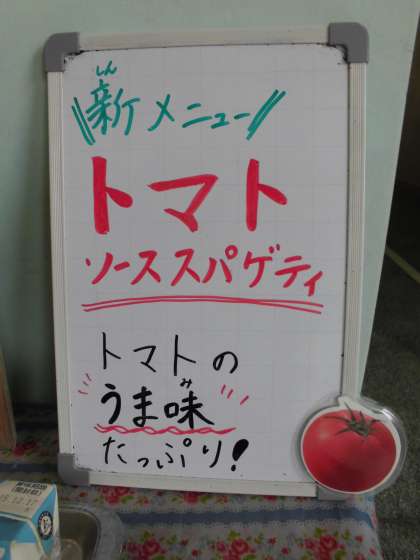 しん
新メニュー
トマト
ソーススパゲティ
トマトの
み
うま味
たっぷり!